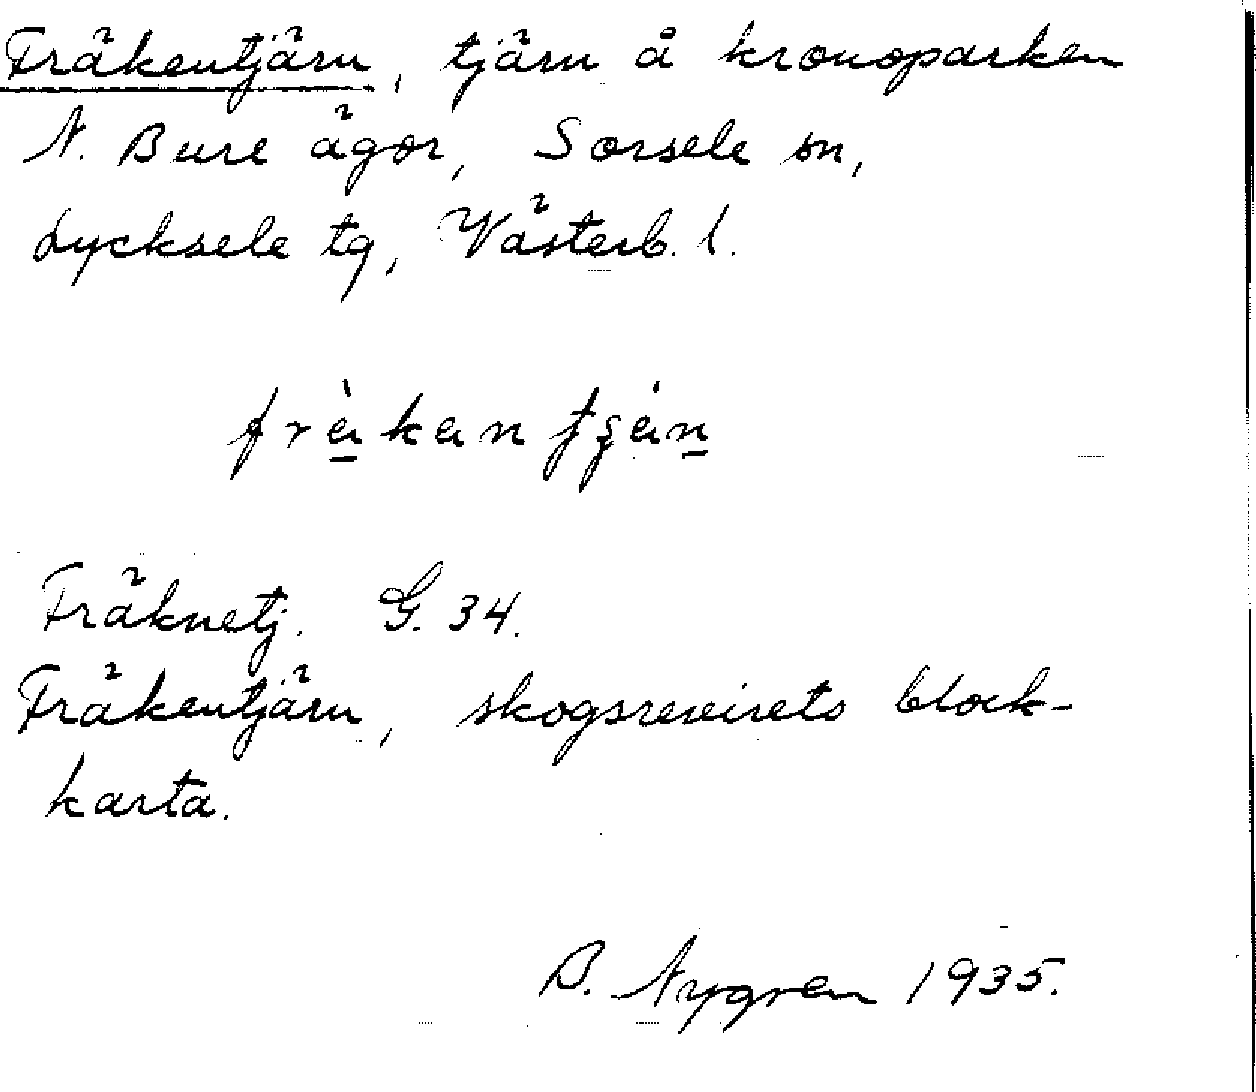 Fräkentjärn, tjärn å kronoparken
N. Bure ägor, Sorsele sn,
Lycksele tg, Västerb. l.
Fräknetj. G. 34.
Fräkentjärn, skogsrevirets block-
karta.
B. Nygren 1935.